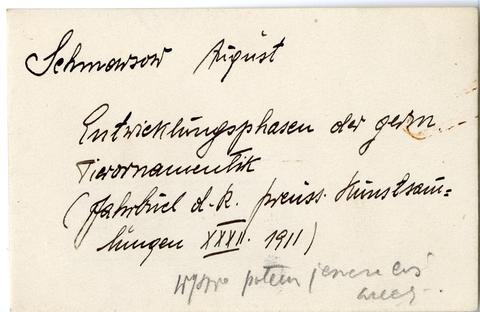 Schmarsow August
Entwicklungsphasen der germ
Tierornamentik
(Jahrbuch d. K. preuss. Kunstsam=
lungen XXXII. 1911)
potem jeszcze coś